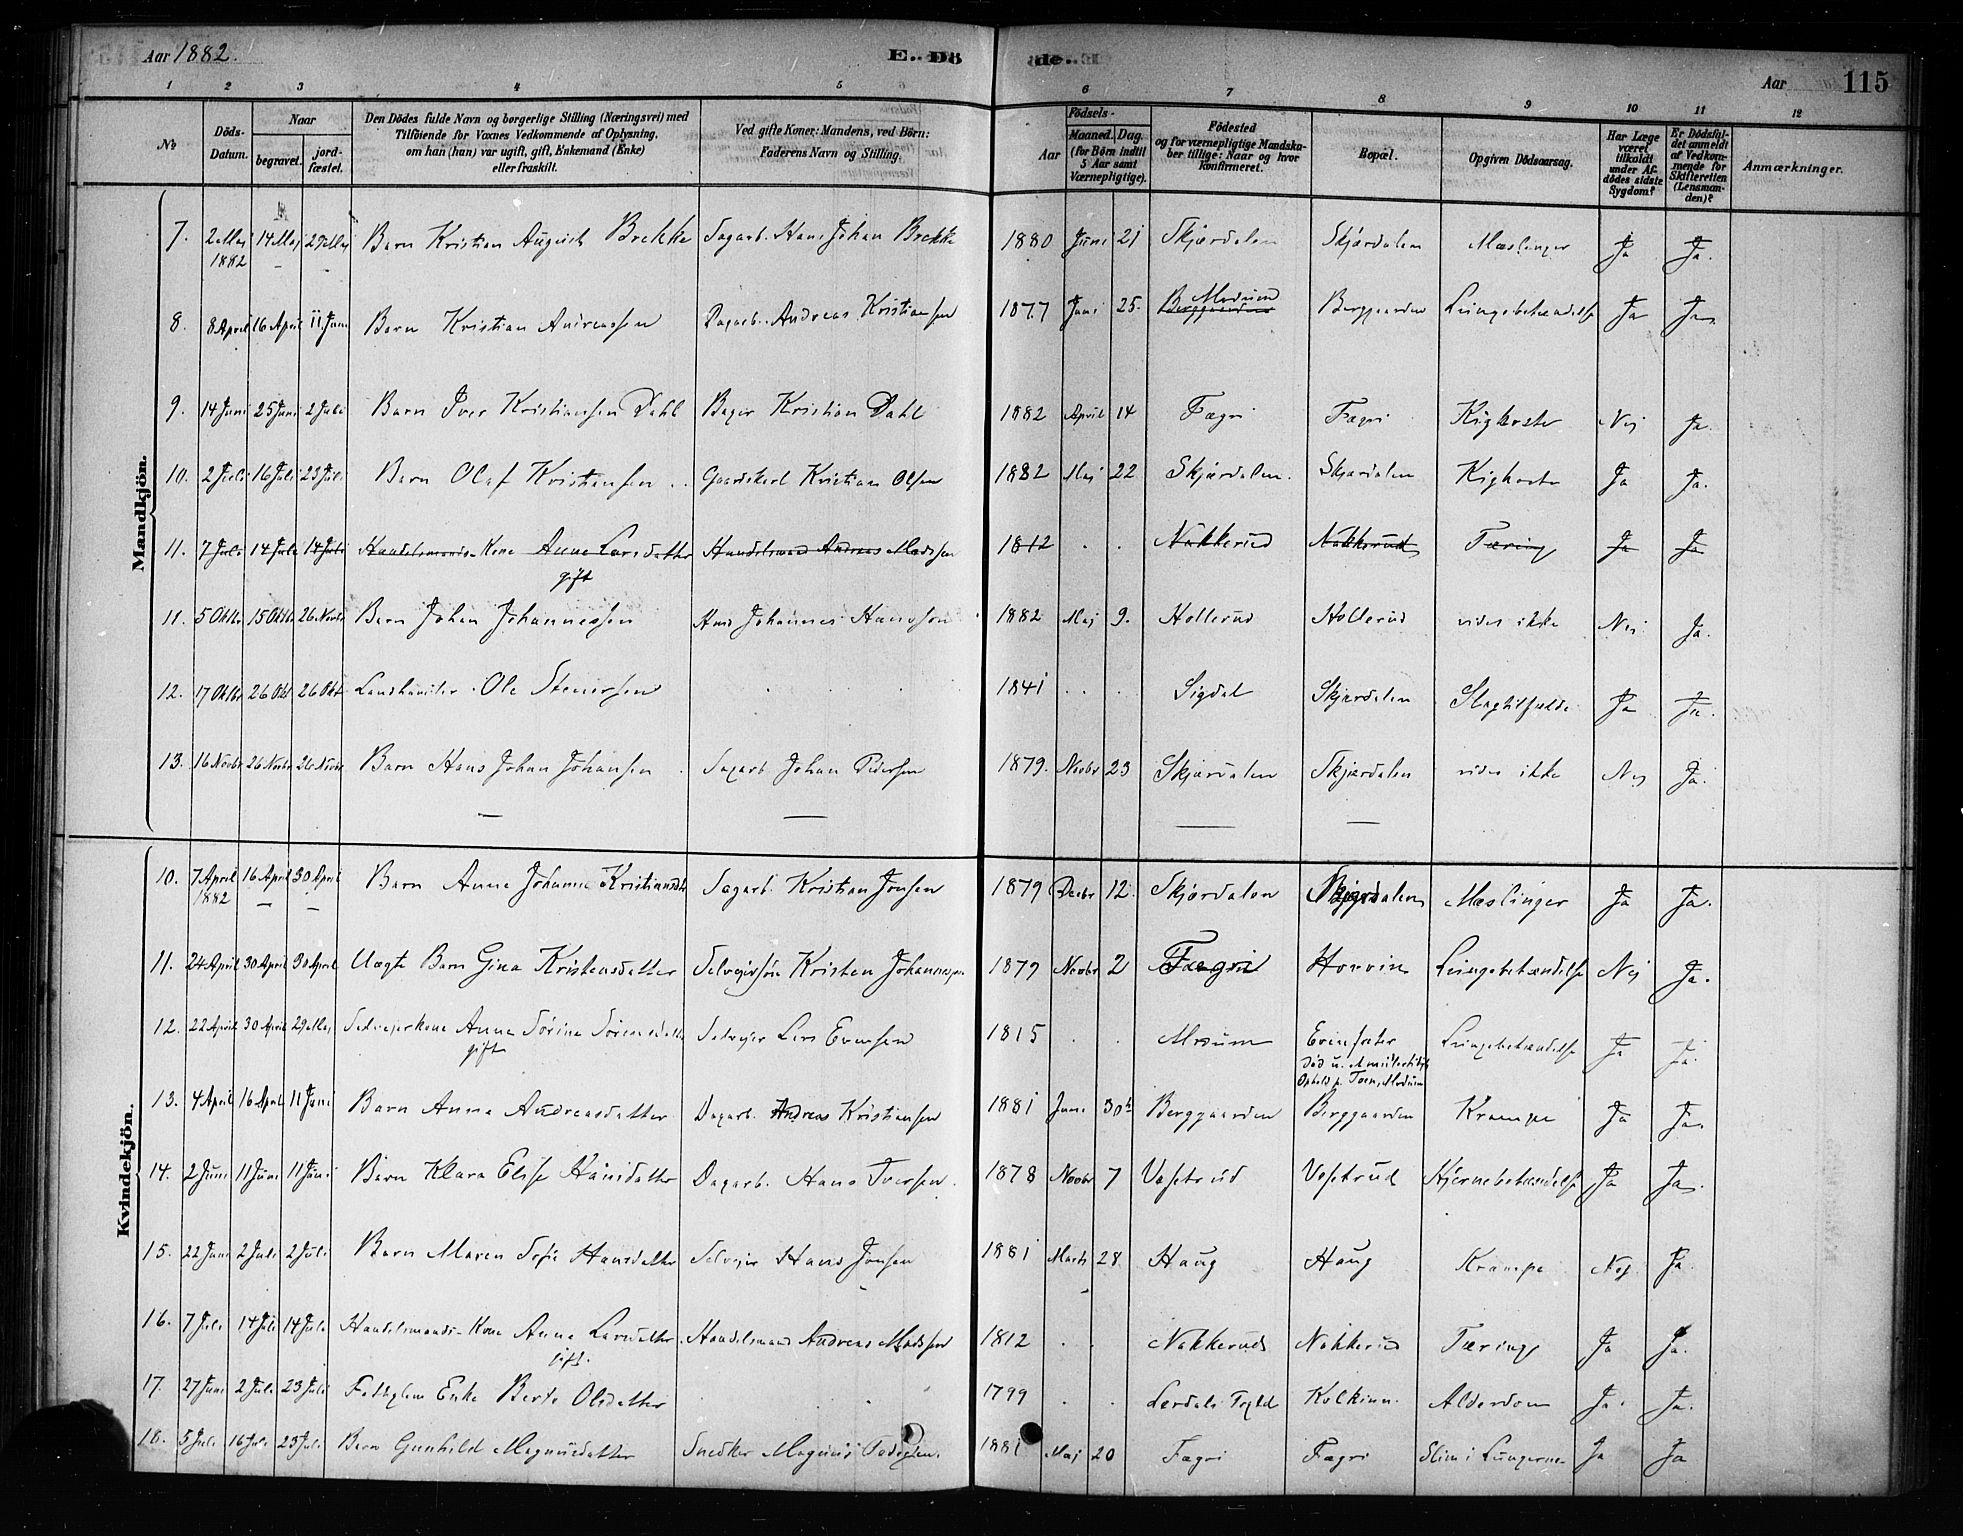 Aar 1882. E. Dö de. Aar 115
1 2 3 4 5 6 7 8 9 10 11 12
№ Döds-Datum. Naar begravet. jord-fæstet. Den Dödes fulde Navn og borgerlige Stilling (Næringsvei) med Tilföiende for Voxnes Vedkommende af Oplysning, om han (hun) var ugift, gift, Enkemand (Enke) eller fraskilt. Ved gifte Koner: Mandens, ved Börn: Faderens Navn og Stilling. Födsels- Aar Maaned. Dag. (for Börn indtil 5 Aar samt Værnepligtige). Födested og for værnepligtige Mandskaber tillige: Naar og hvor konfirmeret. Bopæl. Opgiven Dödsaarsag. Har Læge været tilkaldt under Afdödes sidste Sygdom? Er Dödsfaldet anmeldt af Vedkommende for Skifteretten (Lensmanden)? Anmærkninger.
Mandkjön.
7. 2 Maj 1882 14 Maj 29 Maj Barn Kristian August Brekke Sagarb. Hans Johan Brekke 1880 Juni 21 Skjærdalen Skjærdalen Mæslinger Ja Ja.
8. 8 April 16 April 11 Juni Barn Kristian Andreassen Dagarb. Andreas Kristiansen 1877 Juni 25. Berggaarden Modum Berggaarden Lungebetændelse Ja Ja.
9. 14 Juni 25 Juni 2 Juli Barn Iver Kristiansen Dahl Bager Kristian Dahl 1882 April 14 Fægri Fægri Kighoste Nej Ja.
10. 2 Juli 16 Juli 23 Juli Barn Olaf Kristiansen Gaardskarl Kristian Olsen 1882 Maj 22 Skjærdalen. Skjærdalen Kighoste Ja Ja.
11. 7 Juli 14 Juli 14 Juli Handelsmands-Kone Anne Larsdatter gift Handelsmand Andreas Madssen 1812 . . Nakkerud Nakkerud Tæring Ja Ja
11. 5 Oktbr 15 Oktbr 26 Novbr Barn Johan Johannessen Johannes Hansson 1882 Maj 9. Hollerud Hollerud vides ikke Nej Ja.
12. 17 Oktbr 26 Okt 26 Okt. Landhandler Ole Stenersen . . . 1841 . . . Sigdal Skjærdalen Slagtilfælde Ja Ja.
13. 16 Novbr 26 Novbr 26 Novbr Barn Hans Johan Johansen Sagarb. Johan Pedersen 1879. Novbr 23 Skjærdalen Skjærdalen vides ikke Nej Ja
Kvindekjön.
10. 7 April 1882 16 April 30 April Barn Anne Johanne Kristiansdtr Sagarb. Kristian Jonsen 1879 Decbr 12. Skjærdalen Skjærdalen Mæslinger Ja Ja.
11. 24 April 30 April 30 April Uægte Barn Gina Kristensdatter Selvejersön Kristen Johannessen 1879 Novbr 2 Fægri Horvin Lungebetændelse Nej Ja.
12. 22 April 30 April 29 Maj Selvejerkone Anne Sörine Sörensdatter gift Selvejer Lars Evensen 1815 . . Modum Evensæter Död u. Ophold p. Modum Lungebetændelse Ja Ja.
13. 4 April 16 April 11 Juni Barn Anna Andreasdatter Dagarb. Andreas Kristiansen 1881 Juni 30te Berggaarden Berggaarden Krampe Ja Ja.
14. 2 Juni 11 Juni 11 Juni Barn Klara Elise Hansdatter Dagarb. Hans Iversen. 1878 Novbr 7 Vesetrud Vesetrud Hjernebetændelse Ja Ja.
15. 22 Juni 2 Juli 2 Juli Barn Maren Sofie Hansdatter Selvejer Hans Jonsen 1881 Marts 28. Haug Haug Krampe Nej. Ja.
16. 7 Juli 14 Juli 14 Juli Handelsmands-Kone Anne Larsdatter gift. Handelsmand Andreas Madssen 1812 . . Nakkerud Nakkerud Tæring Ja Ja.
17. 27 Juni 2 Juli 23 Juli Enke Berte Olsdatter . . . 1799 . . Lærdals Kolkinn Alderdom Ja. Ja.
18. 5 Juli 16 Juli 23 Juli Barn Gunhild Magnusdatter Snedker Magnus 1881 Maj 20 Fægri Fægri Slim i Lungerne Ja Ja